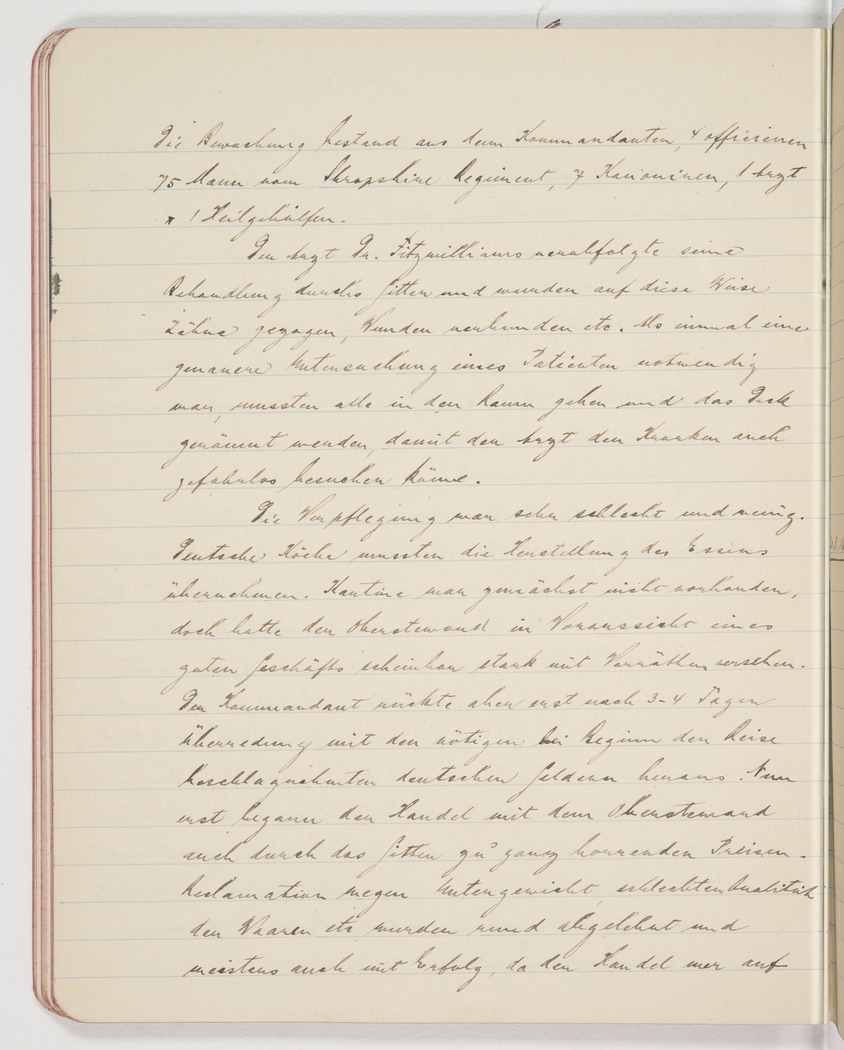 Die Bewachung bestand aus dem Kommandanten, 4 officieren
75 Mann vom Shropshire Regiment, 7 Kanonieren, 1 Arzt
x 1 Heilgehülfen.
Der Arzt Dr. Fitzwilliams verabfolgte seine
Behandlung durchs Gitter und wurden auf diese Weise
Zähne gezogen, Wunden verbunden etc. Als einmal eine
genauere Untersuchung eines Patienten notwendig
war, mussten alle in den Raum gehen und das Deck
geräumt werden, damit der Arzt den Kranken auch
gefahrlos besuchen könne.
Die Verpflegung war sehr schlecht und wenig.
Deutsche Köche mussten die Herstellung des Essens
übernehmen. Kantine war zunächst nicht vorhanden,
doch hatte der Obersteward in Voraussicht eines
guten Geschäfts scheinbar stark mit Vorräthen versehen.
Der Kommandant rückte aber erst nach 3-4 Tagen
Überredung mit den nötigen bei Beginn der Reise
beschlagnahmten deutschen Geldern heraus. Nun
erst begann der Handel mit dem Obersteward
auch durch das Gitter zu ganz horrenden Preisen.
Reclamation wegen Untergewicht, schlechter Qualität
der Waaren etc wurden rund abgelehnt und
meistens auch mit Erfolg, da der Handel nur auf